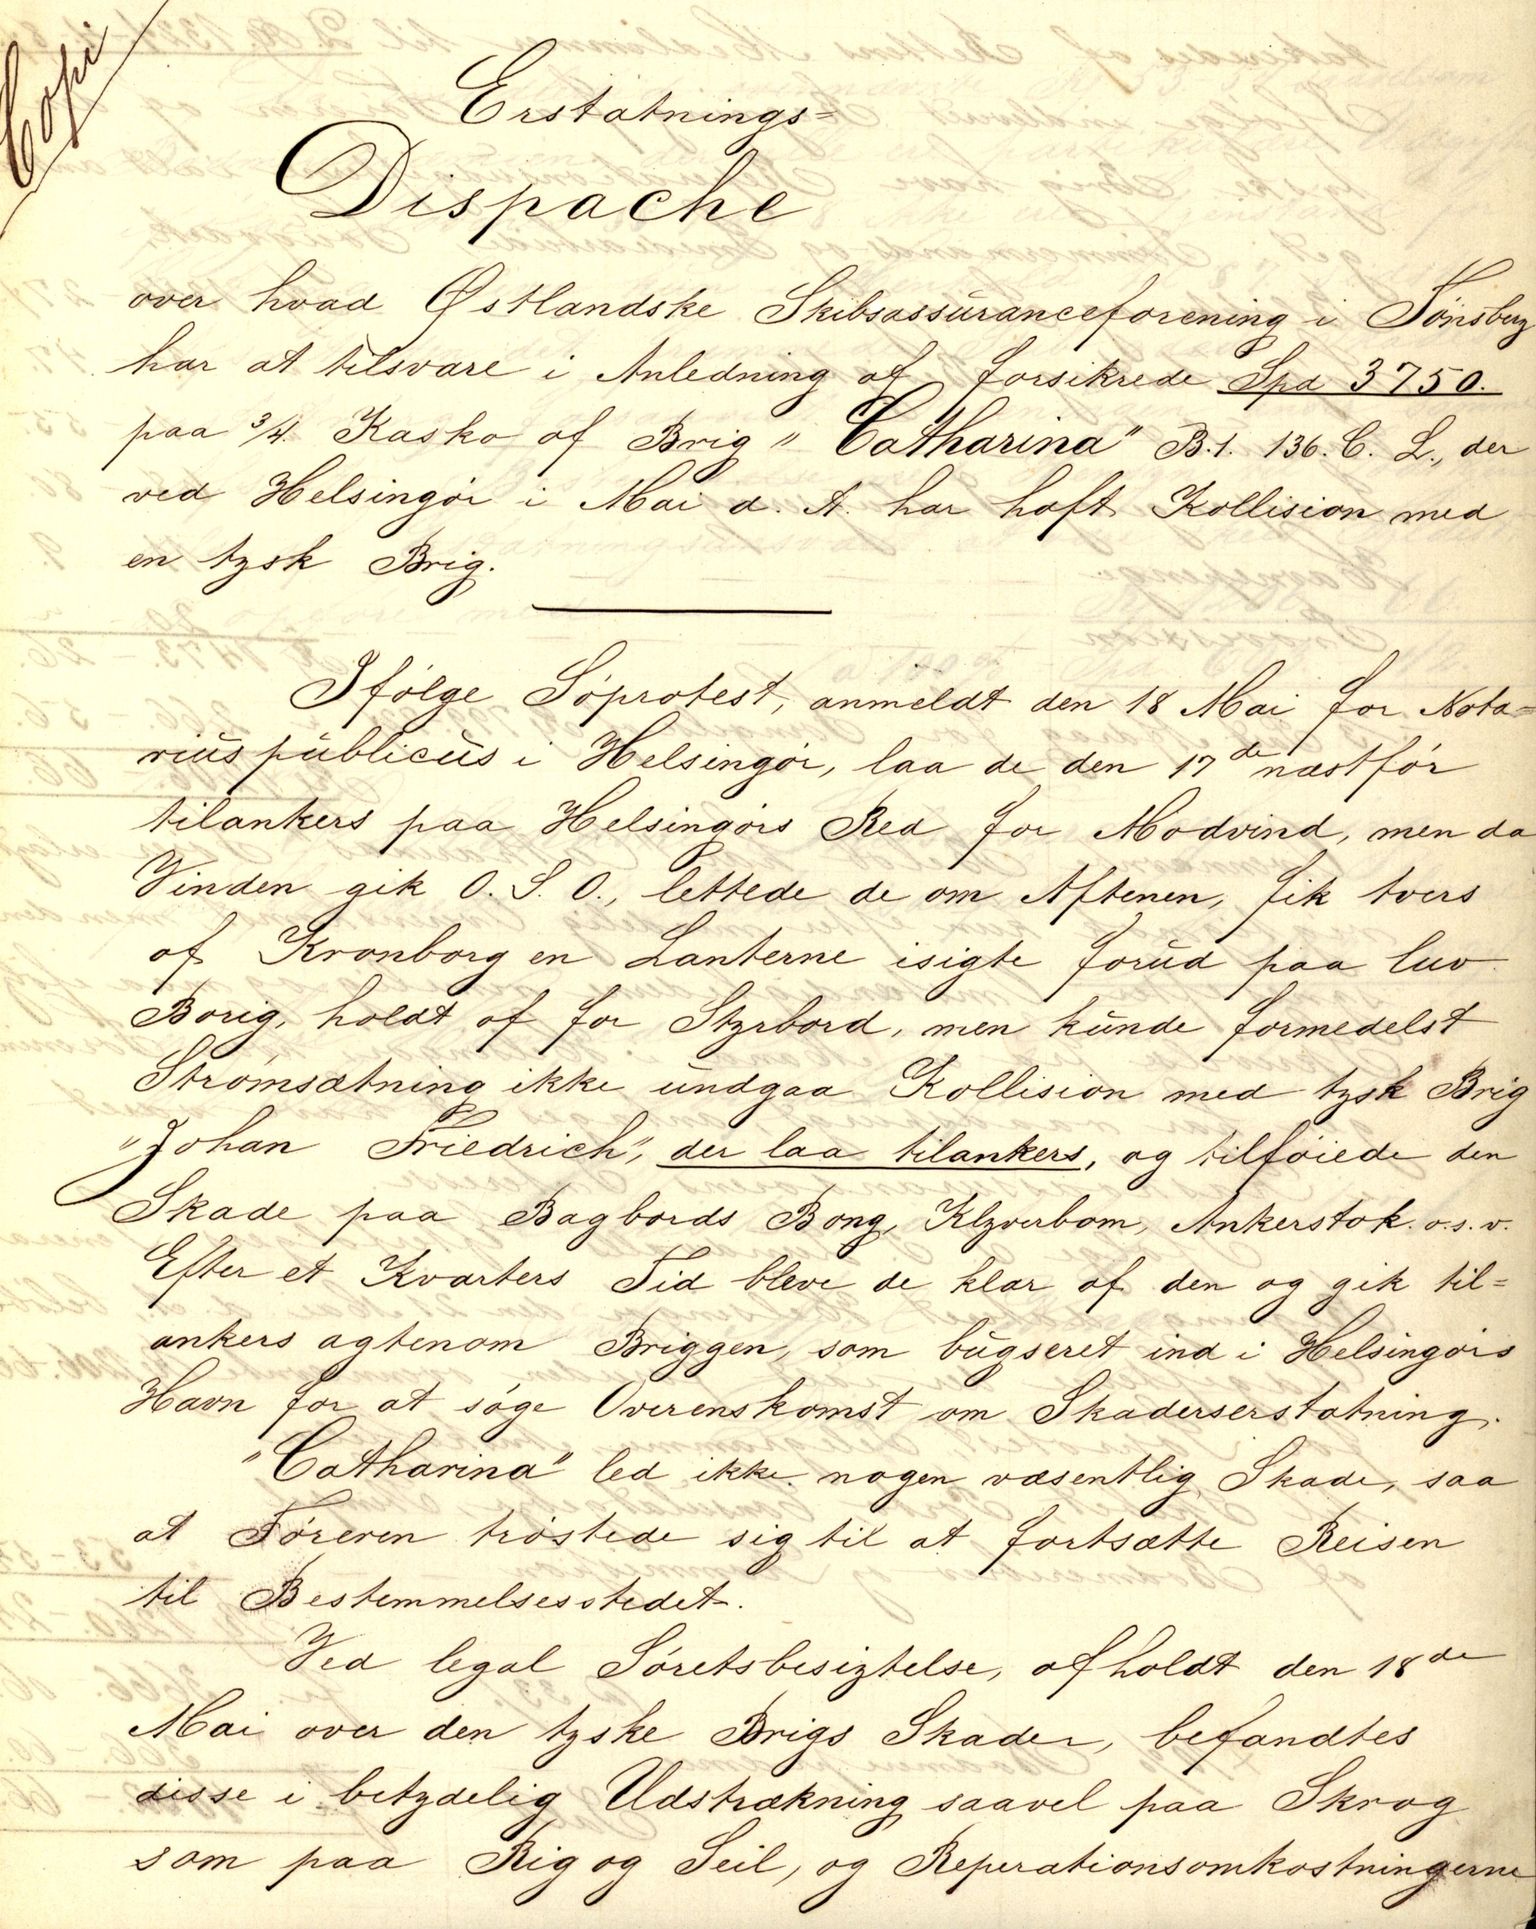 Copi
Erstatnings=
Dispache
over hvad Østlandske Skibsassuranceforening i Tønsberg
har at tilsvare i Anledning af forsikrede Spd 3750.
paa 3/4 Kasko af Brig "Catharina" B.1. 136. C. L., der
ved Helsingør i Mai d. A. har haft Kollision med
en tysk Brig.
Ifølge Søprotest, anmeldt den 18 Mai for Nota=
riuspublicus i Helsingør, laa de den 17de næstfør
tilankers paa Helsingørs Red for Modvind, men da
Vinden gik O. S. O., lettede de om Aftenen, fik tvers
af Kronborg en Lanterne isigte forud paa luv
Borig, holdt af for Styrbord, men kunde formedelst
Strømsætning ikke undgaa Kollision med tysk Brig
"Johan Friedrich", der laa tilankers, og tilføiede den
Skade paa Bagbords Boug, Klyverbom, Ankerstok o.s.v.
Efter et Kvarters Tid bleve de klar af den og gik til=
ankers agtenom Briggen, som bugseret ind i Helsingørs
Havn for at søge Overenskomst om Skaderserstatning.
"Catharina" led ikke nogen væsentlig Skade, saa
at Føreren trøstede sig til at fortsætte Reisen
til Bestemmelsesstedet.
Ved legal Søretsbesigtelse, afholdt den 18de
Mai over den tyske Brigs Skader, befandtes
disse i betydelig Udstrækning saavel paa Skrog
som paa Rig og Seil, og Reperationsomkostningerne